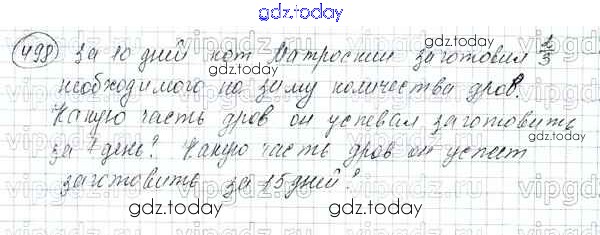 gdz.today
498 За 10 дней кот Матроскин заготовил 2/3
gdz.today
необходимого на зиму количества дров.
Какую часть дров он успевал заготовить
за 1 день? Какую часть дров он успеет
заготовить за 15 дней?
gdz.today
gdz.today